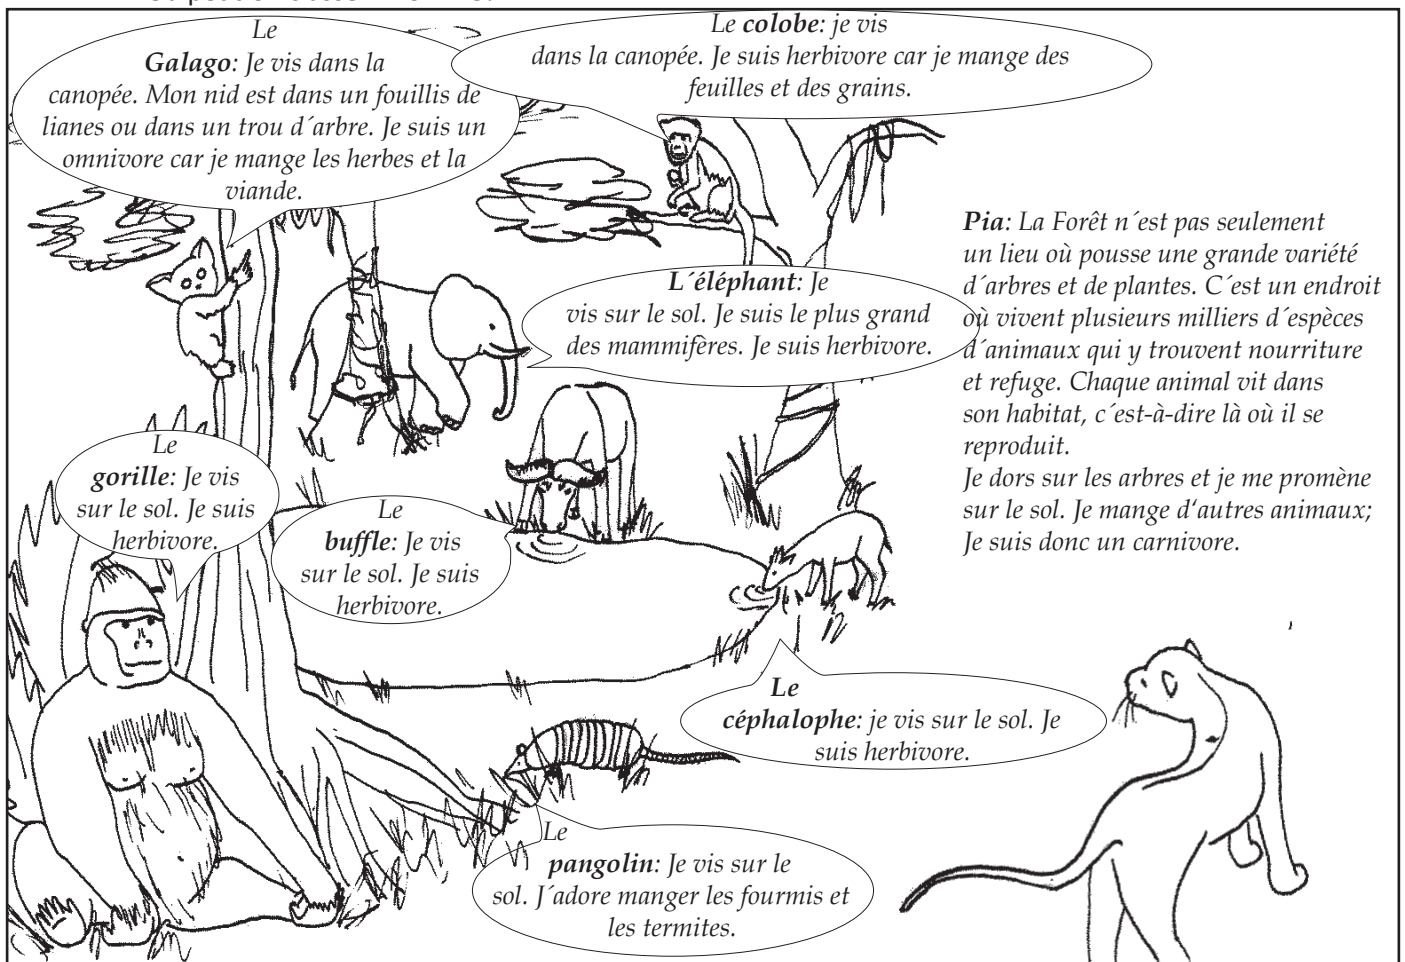 Le
Galago: Je vis dans la
canopée. Mon nid est dans un fouillis de
lianes ou dans un trou d´arbre. Je suis un
omnivore car je mange les herbes et la
viande.
Le colobe: je vis
dans la canopée. Je suis herbivore car je mange des
feuilles et des grains.
Pia: La Forêt n´est pas seulement
un lieu où pousse une grande variété
d´arbres et de plantes. C´est un endroit
où vivent plusieurs milliers d´espèces
d´animaux qui y trouvent nourriture
et refuge. Chaque animal vit dans
son habitat, c´est-à-dire là où il se
reproduit.
Je dors sur les arbres et je me promène
sur le sol. Je mange d‘autres animaux;
Je suis donc un carnivore.
L´éléphant: Je
vis sur le sol. Je suis le plus grand
des mammifères. Je suis herbivore.
Le
gorille: Je vis
sur le sol. Je suis
herbivore.
Le
buffle: Je vis
sur le sol. Je suis
herbivore.
Le
céphalophe: je vis sur le sol. Je
suis herbivore.
Le
pangolin: Je vis sur le
sol. J´adore manger les fourmis et
les termites.